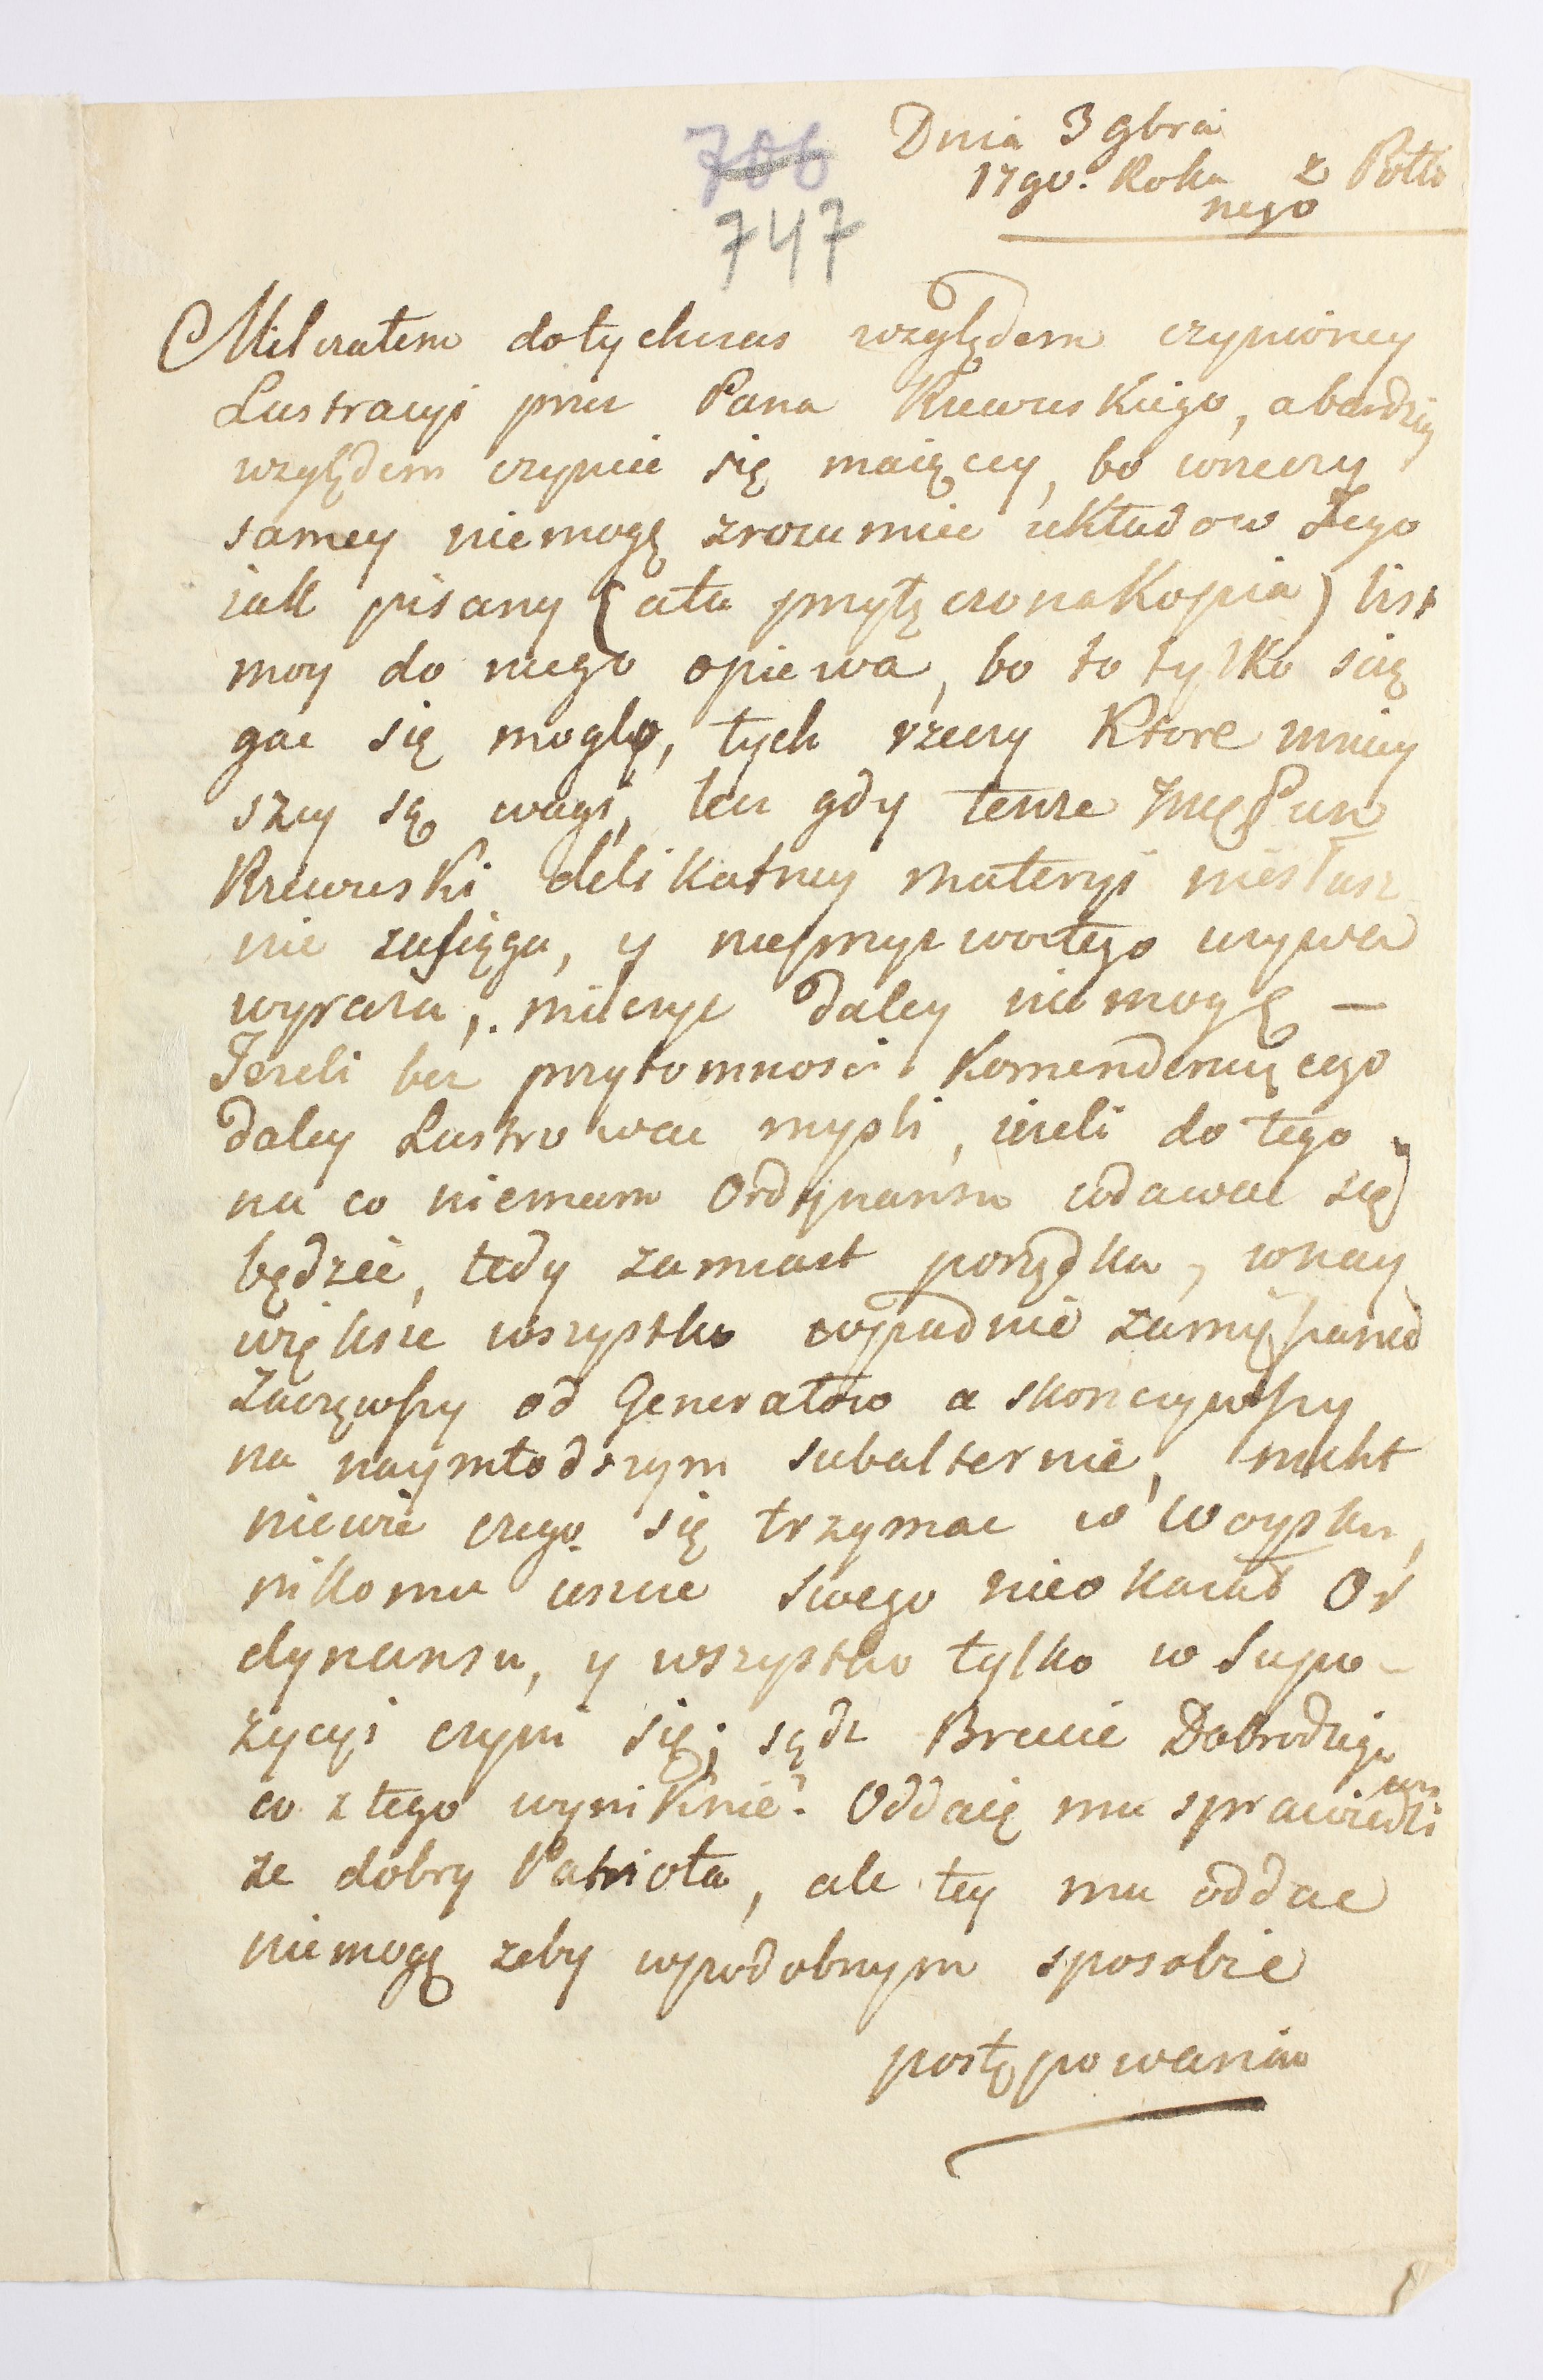 Dnia 3 9bra
706
1790. Roku z Połło
nego
747
Milczałem dotychczas względem czynioney
Lustracyi przez Pana Rzewuskiego, a bardziey
względem czynić się maiącey, bo wrzeczy
samey niemogę zrozumieć układow Jego
iak pisany (ała przyłączona Kopia) list
moy do niego opiewa, bo to tylko scią
gać się mogło, tych rzeczy Ktore mniey
szey są wagi, lecz gdy tenze JmćPan
Rzewuski delikatney materyi niesłusz
nie zasięga, y nieprzyzwoitego używa
wyrazu, milczyć daley niemogę —
Jezeli bez przytomnosci Komenderuiącego
daley Lustrować mysli, iezeli do tego
na co niemam Ordynansu udawać się
będzie, tedy zamiast porządku, w nay
większe wszystko wpadnie zamięszanie
Zacząwszy od Generałow a skonczywszy
na naymłodszym subalternie, nikt
niewie czego się trzymać w Woysku,
nikomu ieszcze swego nieokazał Or
dynansu, y wszystko tylko w Supo-
zycyi czyni się; sądz Bracie Dobrodzieju
co z tego wyniknie? Oddaię mu sprawiedli
wość
ze dobry Patriota, ale tey mu oddać
niemogę zeby wpodobnym sposobie
postępowania